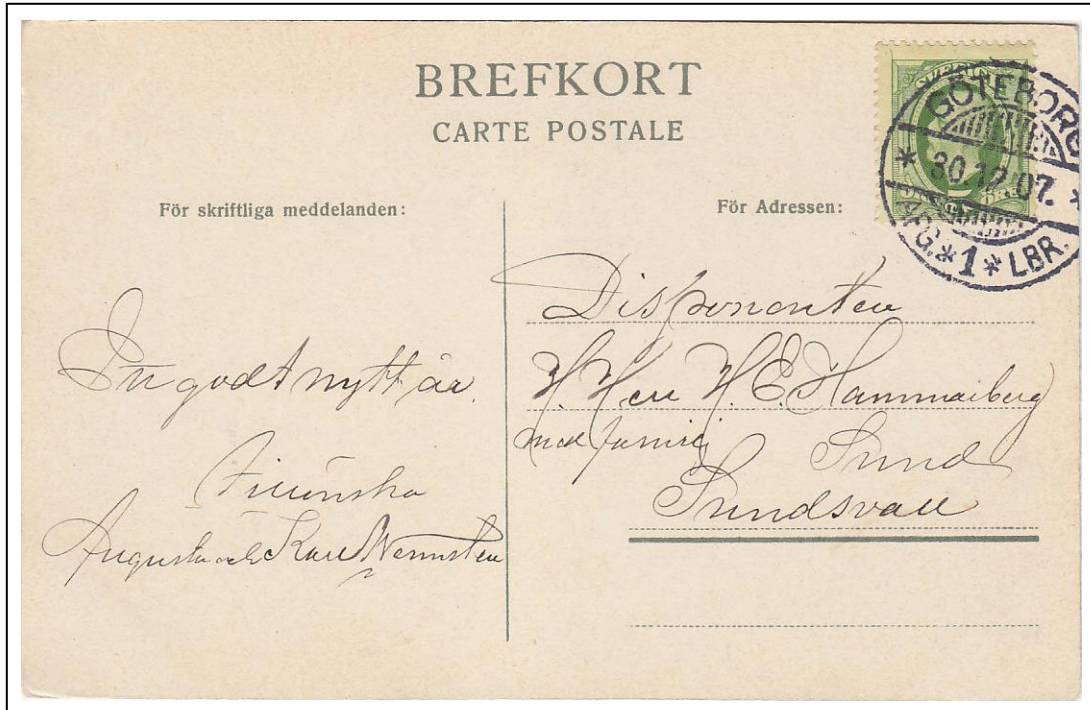 BREFKORT
CARTE POSTALE
GÖTEBORG
* 30.12.07. *
AFG. * 1 * LBR.
För skriftliga meddelanden:
Ett godt nytt år.
tillönska
Augusta och Karl Wennsten
För Adressen:
Disponenten
H. Herr H. E. Hammarberg
med familj
Sund
Sundsvall